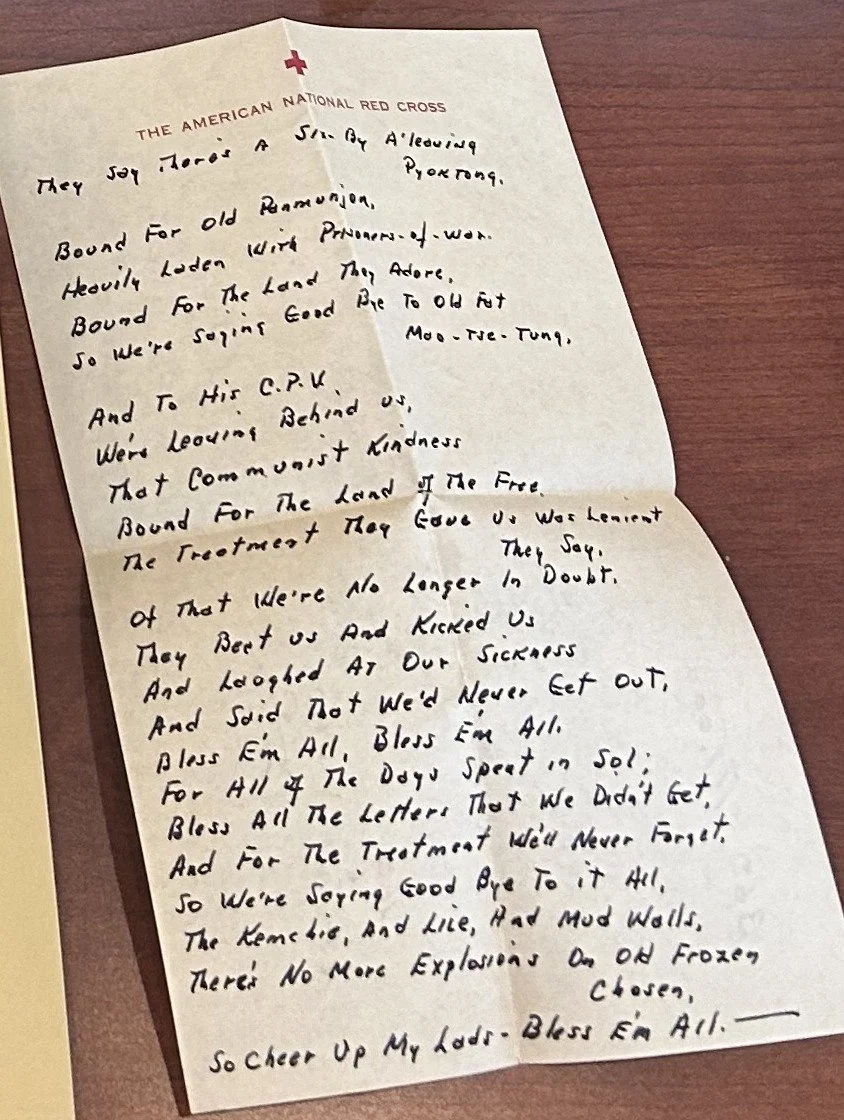 THE AMERICAN NATIONAL RED CROSS
They Say There's A Six-By A'leaving
Pyoktong,
Bound For Old Panmunjon,
Heavily Laden With Prisoners-of-war.
Bound For The Land They Adore,
So We're Saying Good Bye To Old Fat
Mao-Tse-Tung,
And To His C.P.V.
We're Leaving Behind us,
That Communist Kindness
Bound For The Land of The Free.
The Treatment They Gave Us Was Lenient
They Say,
Of That We're No Longer In Doubt.
They Beet us And Kicked Us
And Laughed At Our Sickness
And Said That We'd Never Get Out,
Bless E'm All, Bless E'm All.
For All of The Days Spent in Sol;
Bless All The Letters That We Didn't Get,
And For The Treatment We'll Never Forget.
So We're Saying Good Bye To it All,
The Kemchie, And Lice, And Mud Walls,
There's No More Explosions On Old Frozen
Chosen,
So Cheer Up My Lads - Bless E'm All. —